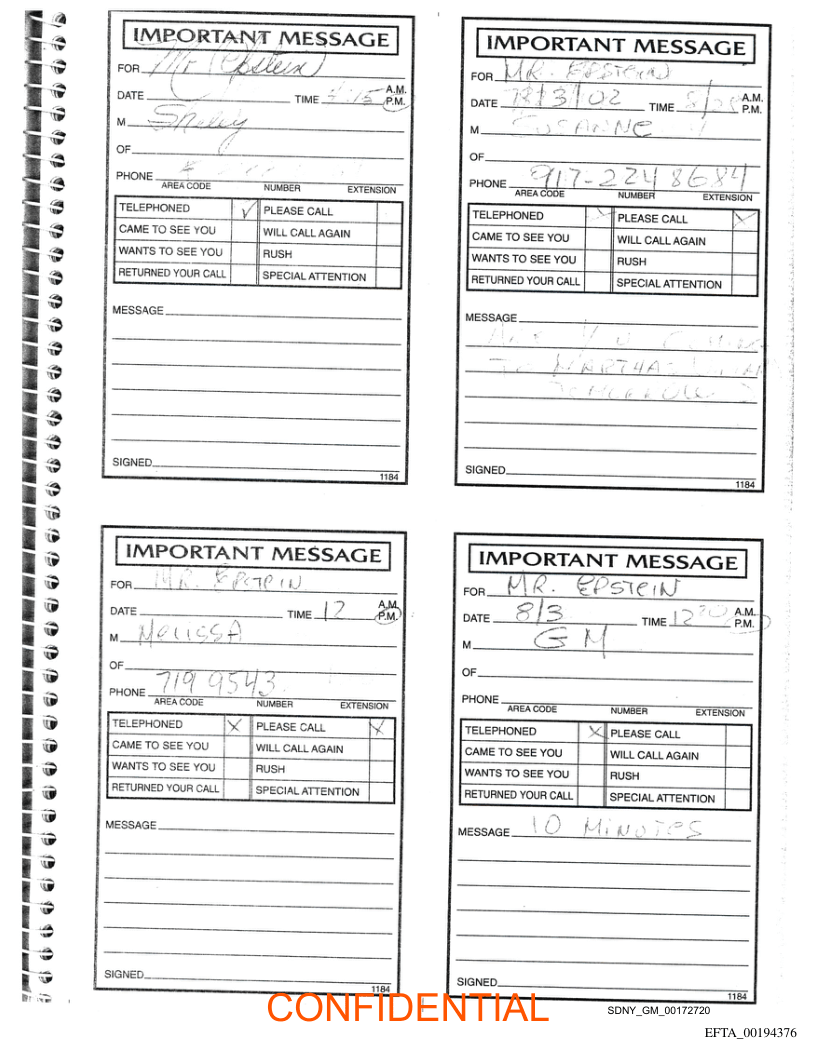 IMPORTANT MESSAGE
FOR Mr Epstein
DATE TIME 4:15 A.M. P.M.
M
OF
PHONE
AREA CODE NUMBER EXTENSION
TELEPHONED ✓ PLEASE CALL
CAME TO SEE YOU WILL CALL AGAIN
WANTS TO SEE YOU RUSH
RETURNED YOUR CALL SPECIAL ATTENTION
MESSAGE
SIGNED
1184
IMPORTANT MESSAGE
FOR MR. EPSTEIN
DATE TIME A.M. P.M.
M
OF
PHONE 917-224 8684
AREA CODE NUMBER EXTENSION
TELEPHONED PLEASE CALL X
CAME TO SEE YOU WILL CALL AGAIN
WANTS TO SEE YOU RUSH
RETURNED YOUR CALL SPECIAL ATTENTION
MESSAGE
TO MARTHAS
SIGNED
1184
IMPORTANT MESSAGE
FOR MR. EPSTEIN
DATE TIME 12 A.M. P.M.
M MELISSA
OF
PHONE 719 9543
AREA CODE NUMBER EXTENSION
TELEPHONED X PLEASE CALL X
CAME TO SEE YOU WILL CALL AGAIN
WANTS TO SEE YOU RUSH
RETURNED YOUR CALL SPECIAL ATTENTION
MESSAGE
SIGNED
1184
IMPORTANT MESSAGE
FOR MR. EPSTEIN
DATE 8/3 TIME A.M. P.M.
M GM
OF
PHONE
AREA CODE NUMBER EXTENSION
TELEPHONED X PLEASE CALL
CAME TO SEE YOU WILL CALL AGAIN
WANTS TO SEE YOU RUSH
RETURNED YOUR CALL SPECIAL ATTENTION
MESSAGE 10 MINUTES
SIGNED
1184
CONFIDENTIAL
SDNY_GM_00172720
EFTA_00194376